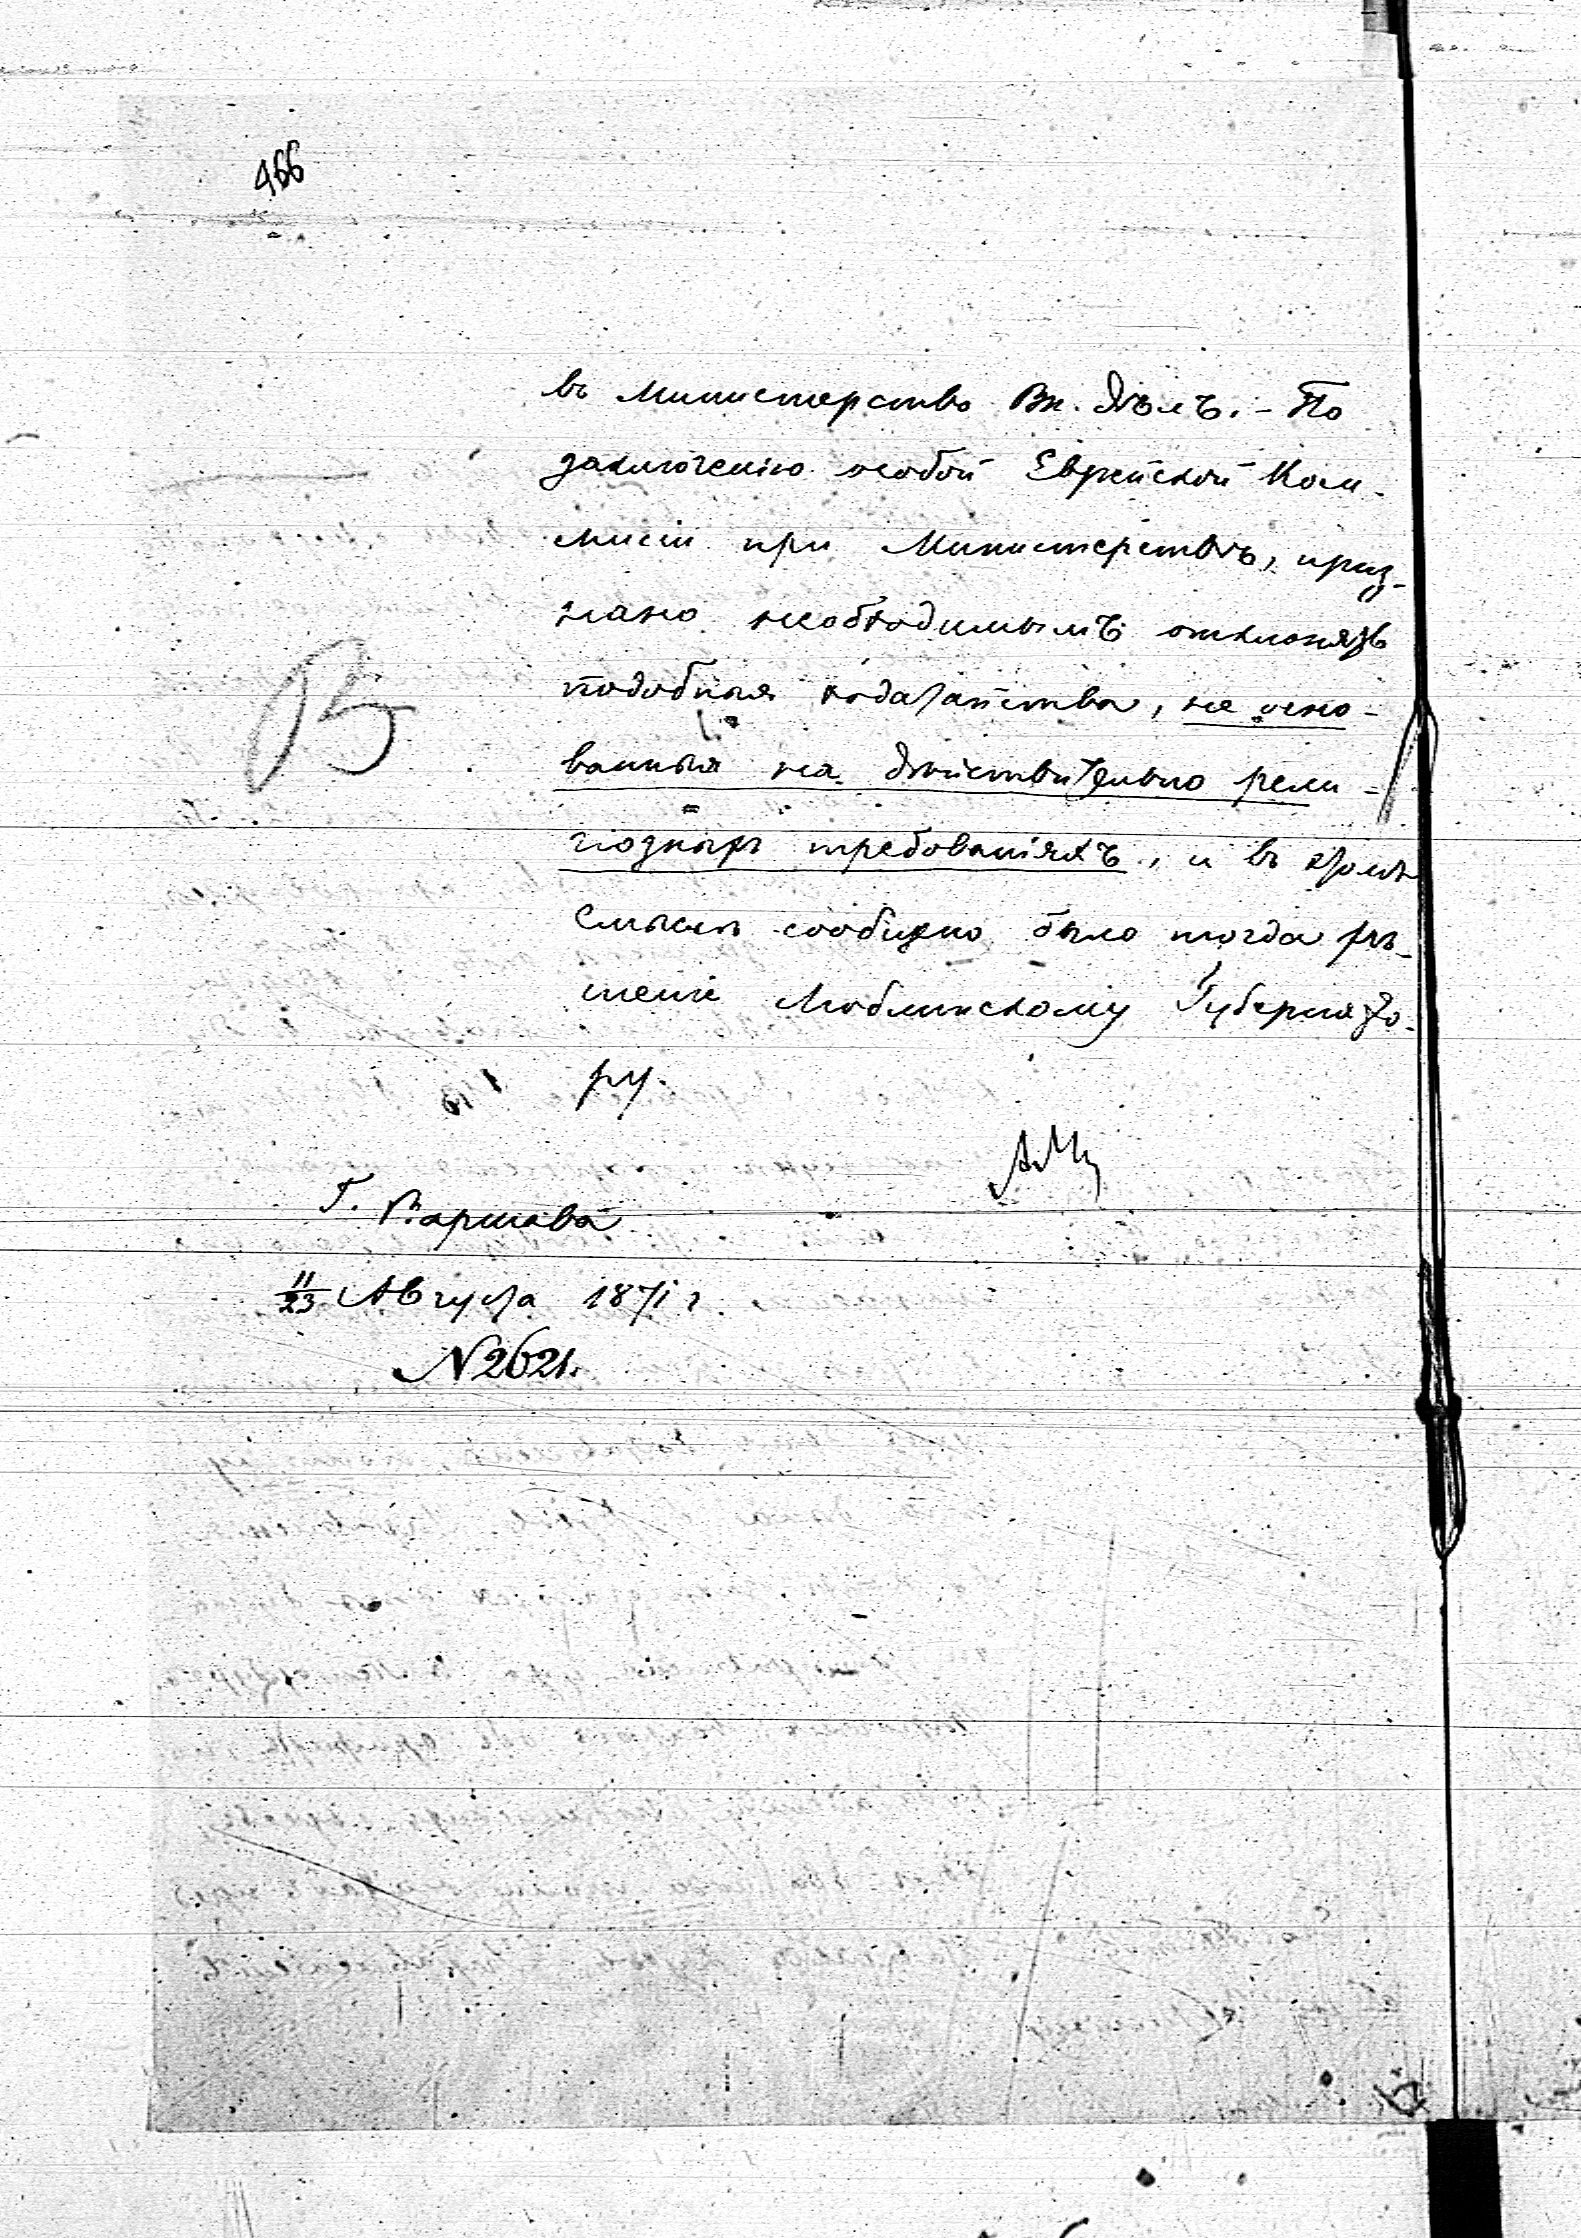 466
въ Министерство Вн. Дѣлъ. - По
заключенію особой Еврейской Ком-
мисіи при Министерствѣ, приз-
нано необходимымъ отклонять
подобныя ходатайства, не осно-
ванныя на дѣйствительно рели-
гіозныхъ требованіяхъ, и въ этомъ
смыслѣ сообщено было тогда рѣ-
шеніе Люблинскому Губернато-
ру.
Г. Варшава
11/23 Августа 1871 г.
N 2621.